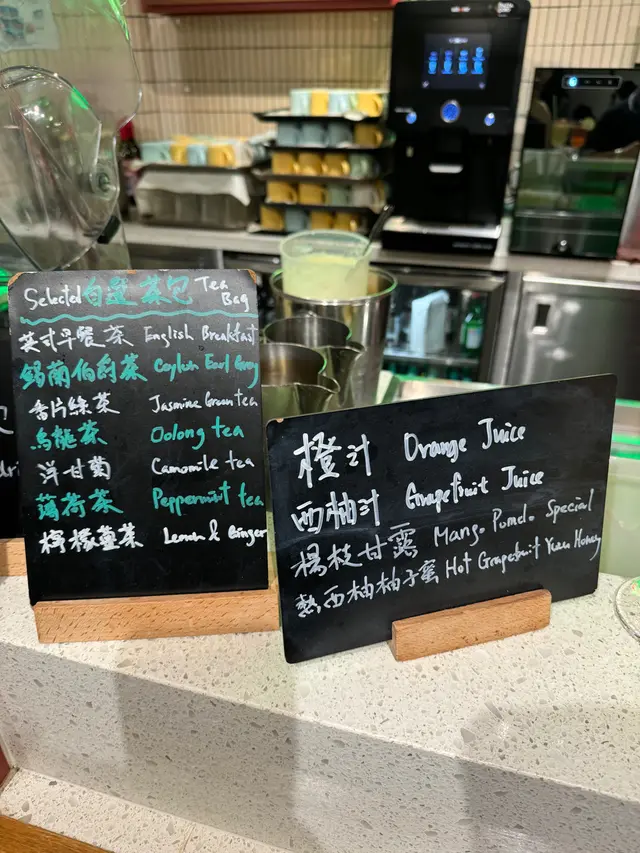 Selected 自選茶包 Tea Bag
英式早餐茶 English Breakfast
錫蘭伯爵茶 Ceylon Earl Grey
香片綠茶 Jasmine Green tea
烏龍茶 Oolong tea
洋甘菊 Camomile tea
薄荷茶 Peppermint tea
檸檬薑茶 Lemon & Ginger
橙汁 Orange Juice
西柚汁 Grapefruit Juice
楊枝甘露 Mang. Pomel. Special
熱西柚柚子蜜 Hot Grapefruit Yuzu Honey